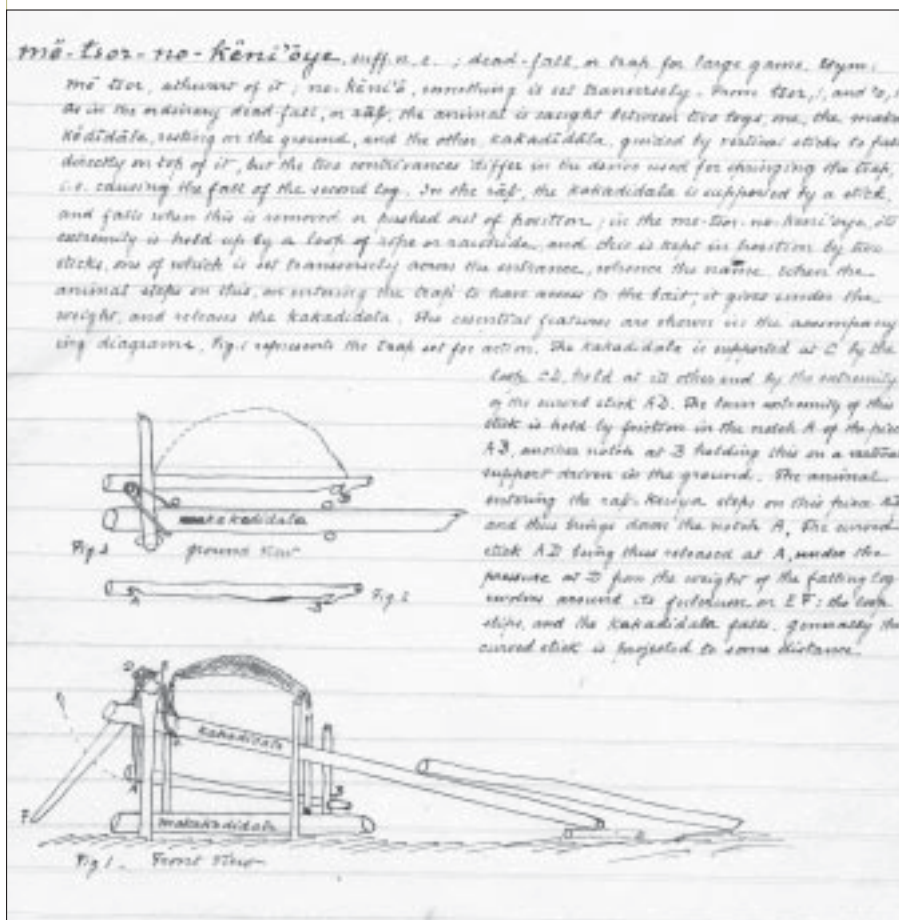 mĕ-tsor-no-kĕni'ōye, suff. n. c. ; dead-fall, or trap for large game. Etym:
mĕ tsor, athwart of it; no-kĕni'ō, something is set transversely. From tsor, !, and 'o,
As in the ordinary dead-fall, or rāf, the animal is caught between two logs, one, the maka
kădīdāla, resting on the ground, and the other, kakadīdāla, guided by vertical sticks to fall
directly on top of it, but the two contrivances differ in the device used for springing the trap,
i.e. causing the fall of the second log. In the rāf, the kakadidala is supported by a stick,
and falls when this is removed or pushed out of position; in the me-tsor-no-keni'oye, its
extremity is held up by a loop of rope or rawhide, and this is kept in position by two
sticks, one of which is set transversely across the entrance, whence the name. When the
animal steps on this, on entering the trap to have access to the bait, it gives under the
weight, and releases the kakadidala. The essential features are shown in the accompany
ing diagrams. Fig. 1 represents the trap set for action. The kakadidala is supported at C by the
loop CD, held at its other end by the extremity
of the curved stick AD. The lower extremity of this
stick is held by friction in the notch A of the piece
AB, another notch at B holding this on a vertical
support driven in the ground. The animal
entering the raf-keniya steps on this piece AB
and thus brings down the notch A. The curved
stick AD being thus released at A, under the
pressure at D from the weight of the falling log
revolves around its fulcrum or EF: the loop
slips, and the kakadidala falls. Generally the
curved stick is projected to some distance.
B
makakadidala
Fig. 3 ground view
A B Fig. 2
D
kakadidala
A B
F
makakadidala
Fig. 1 - Front view